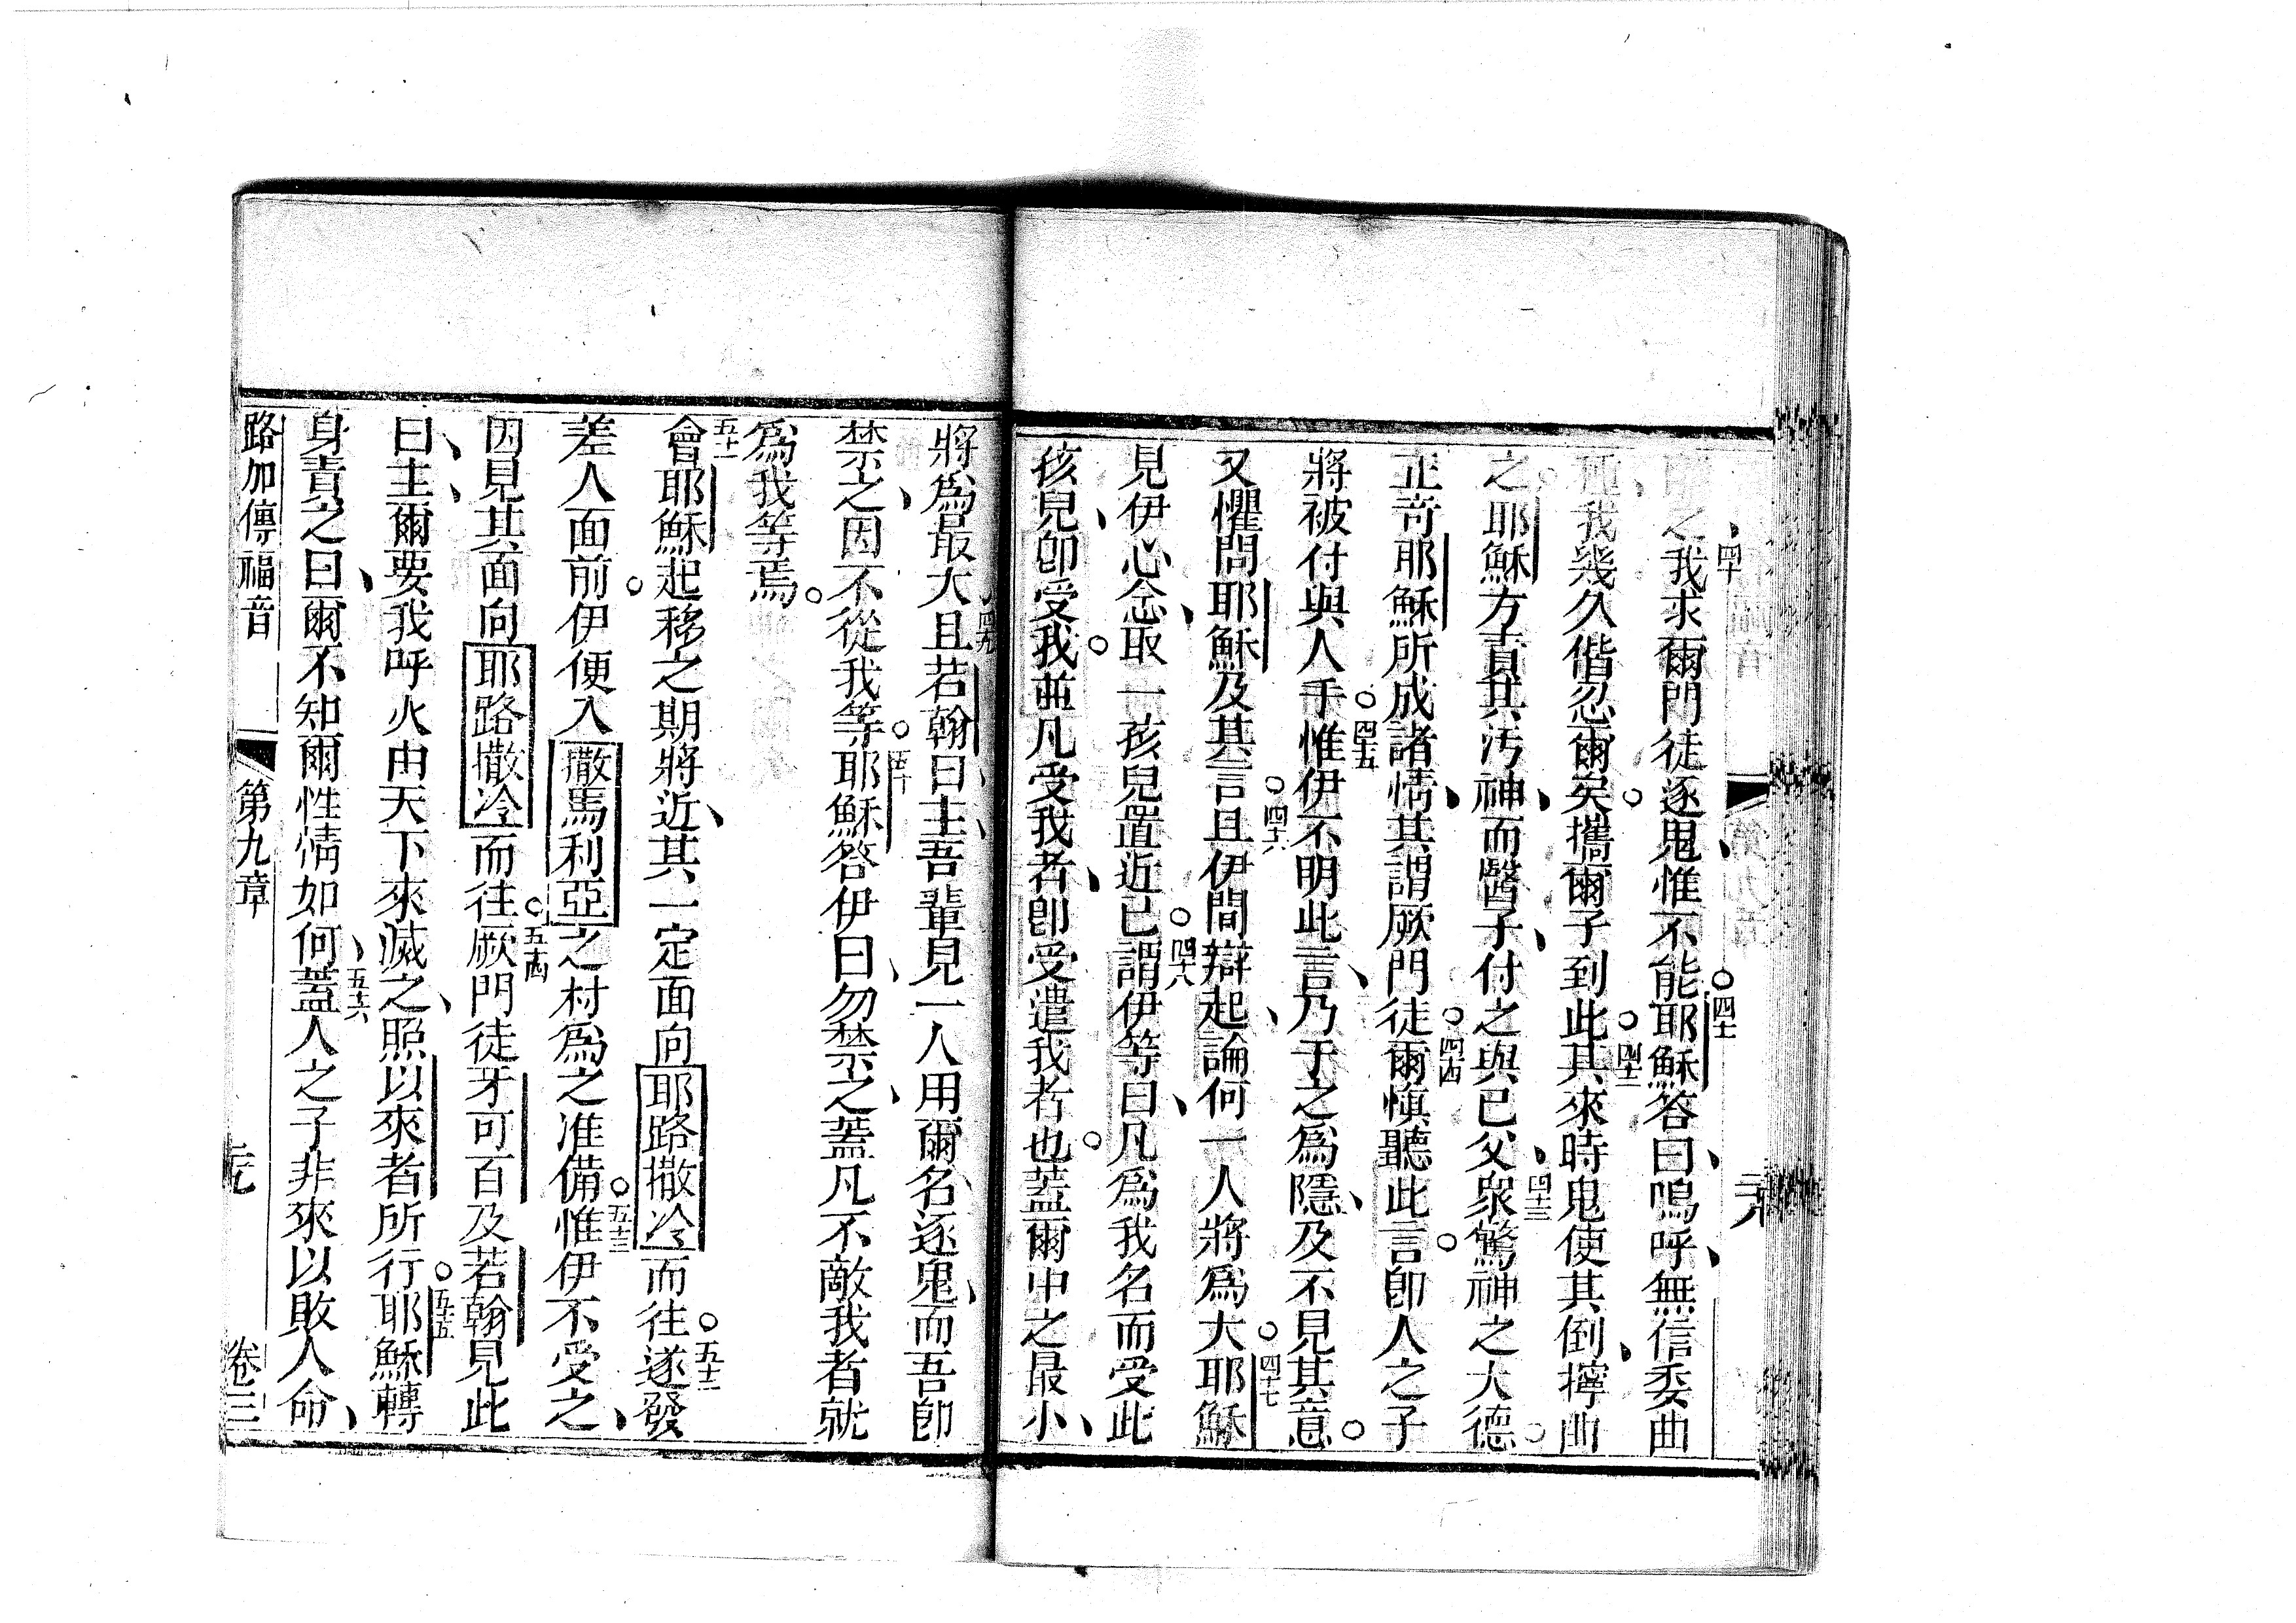 之我求爾門徒逐鬼、惟不能。耶穌答曰、嗚呼、無信委曲
我幾久偕忍爾矣。攜爾子到此。其來時鬼使其倒、擰曲
之。耶穌方責其污神、而醫子、付之與己父、眾驚神之大德。
正奇耶穌所成諸情、其謂厥門徒。爾慎聽此言。即人之子
將被付與人手。惟伊不明此言、乃于之為隱、及不見其意。
又懼問耶穌及其言。且伊間辯起、論何一人將為大。耶穌
見伊心念、取一孩兒置近己。謂伊等曰、凡為我名而受此
孩兒、即受我。並凡受我者、即受遣我者也。蓋爾中之最小、
將為最大。且若翰曰、主、吾輩見一人用爾名、逐鬼、而吾即
禁之、因不從我等。耶穌答伊曰、勿禁之、蓋凡不敵我者就
為我等焉。
會耶穌起移之期將近、其一定面向耶路撒冷而往。遂發
差人面前。伊便入撒馬利亞之村為之准備。惟伊不受之、
因見其面向耶路撒冷而往。厥門徒牙可百及若翰見此
曰、主、爾要我呼火由天下來滅之、照以來者所行。耶穌轉
身責之曰、爾不知爾性情如何、蓋人之子非來以敗人命、
路加傳福音 第九章 卷三
四十
四十一
四十二
四十三
四十四
四十五
四十六
四十七
四十八
四十九
五十
五十一
五十二
五十三
五十四
五十五
五十六